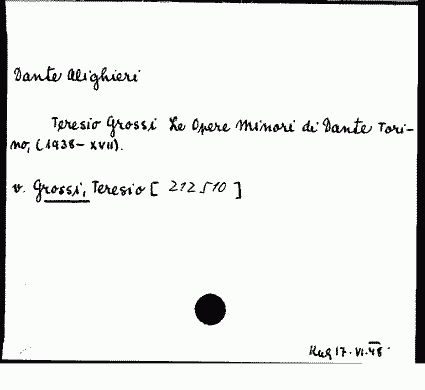 Dante Alighieri
Teresio Grossi Le Opere Minori di Dante Tori-
no, (1938-XVII).
v. Grossi, Teresio [ 212510 ]
17.VI.48